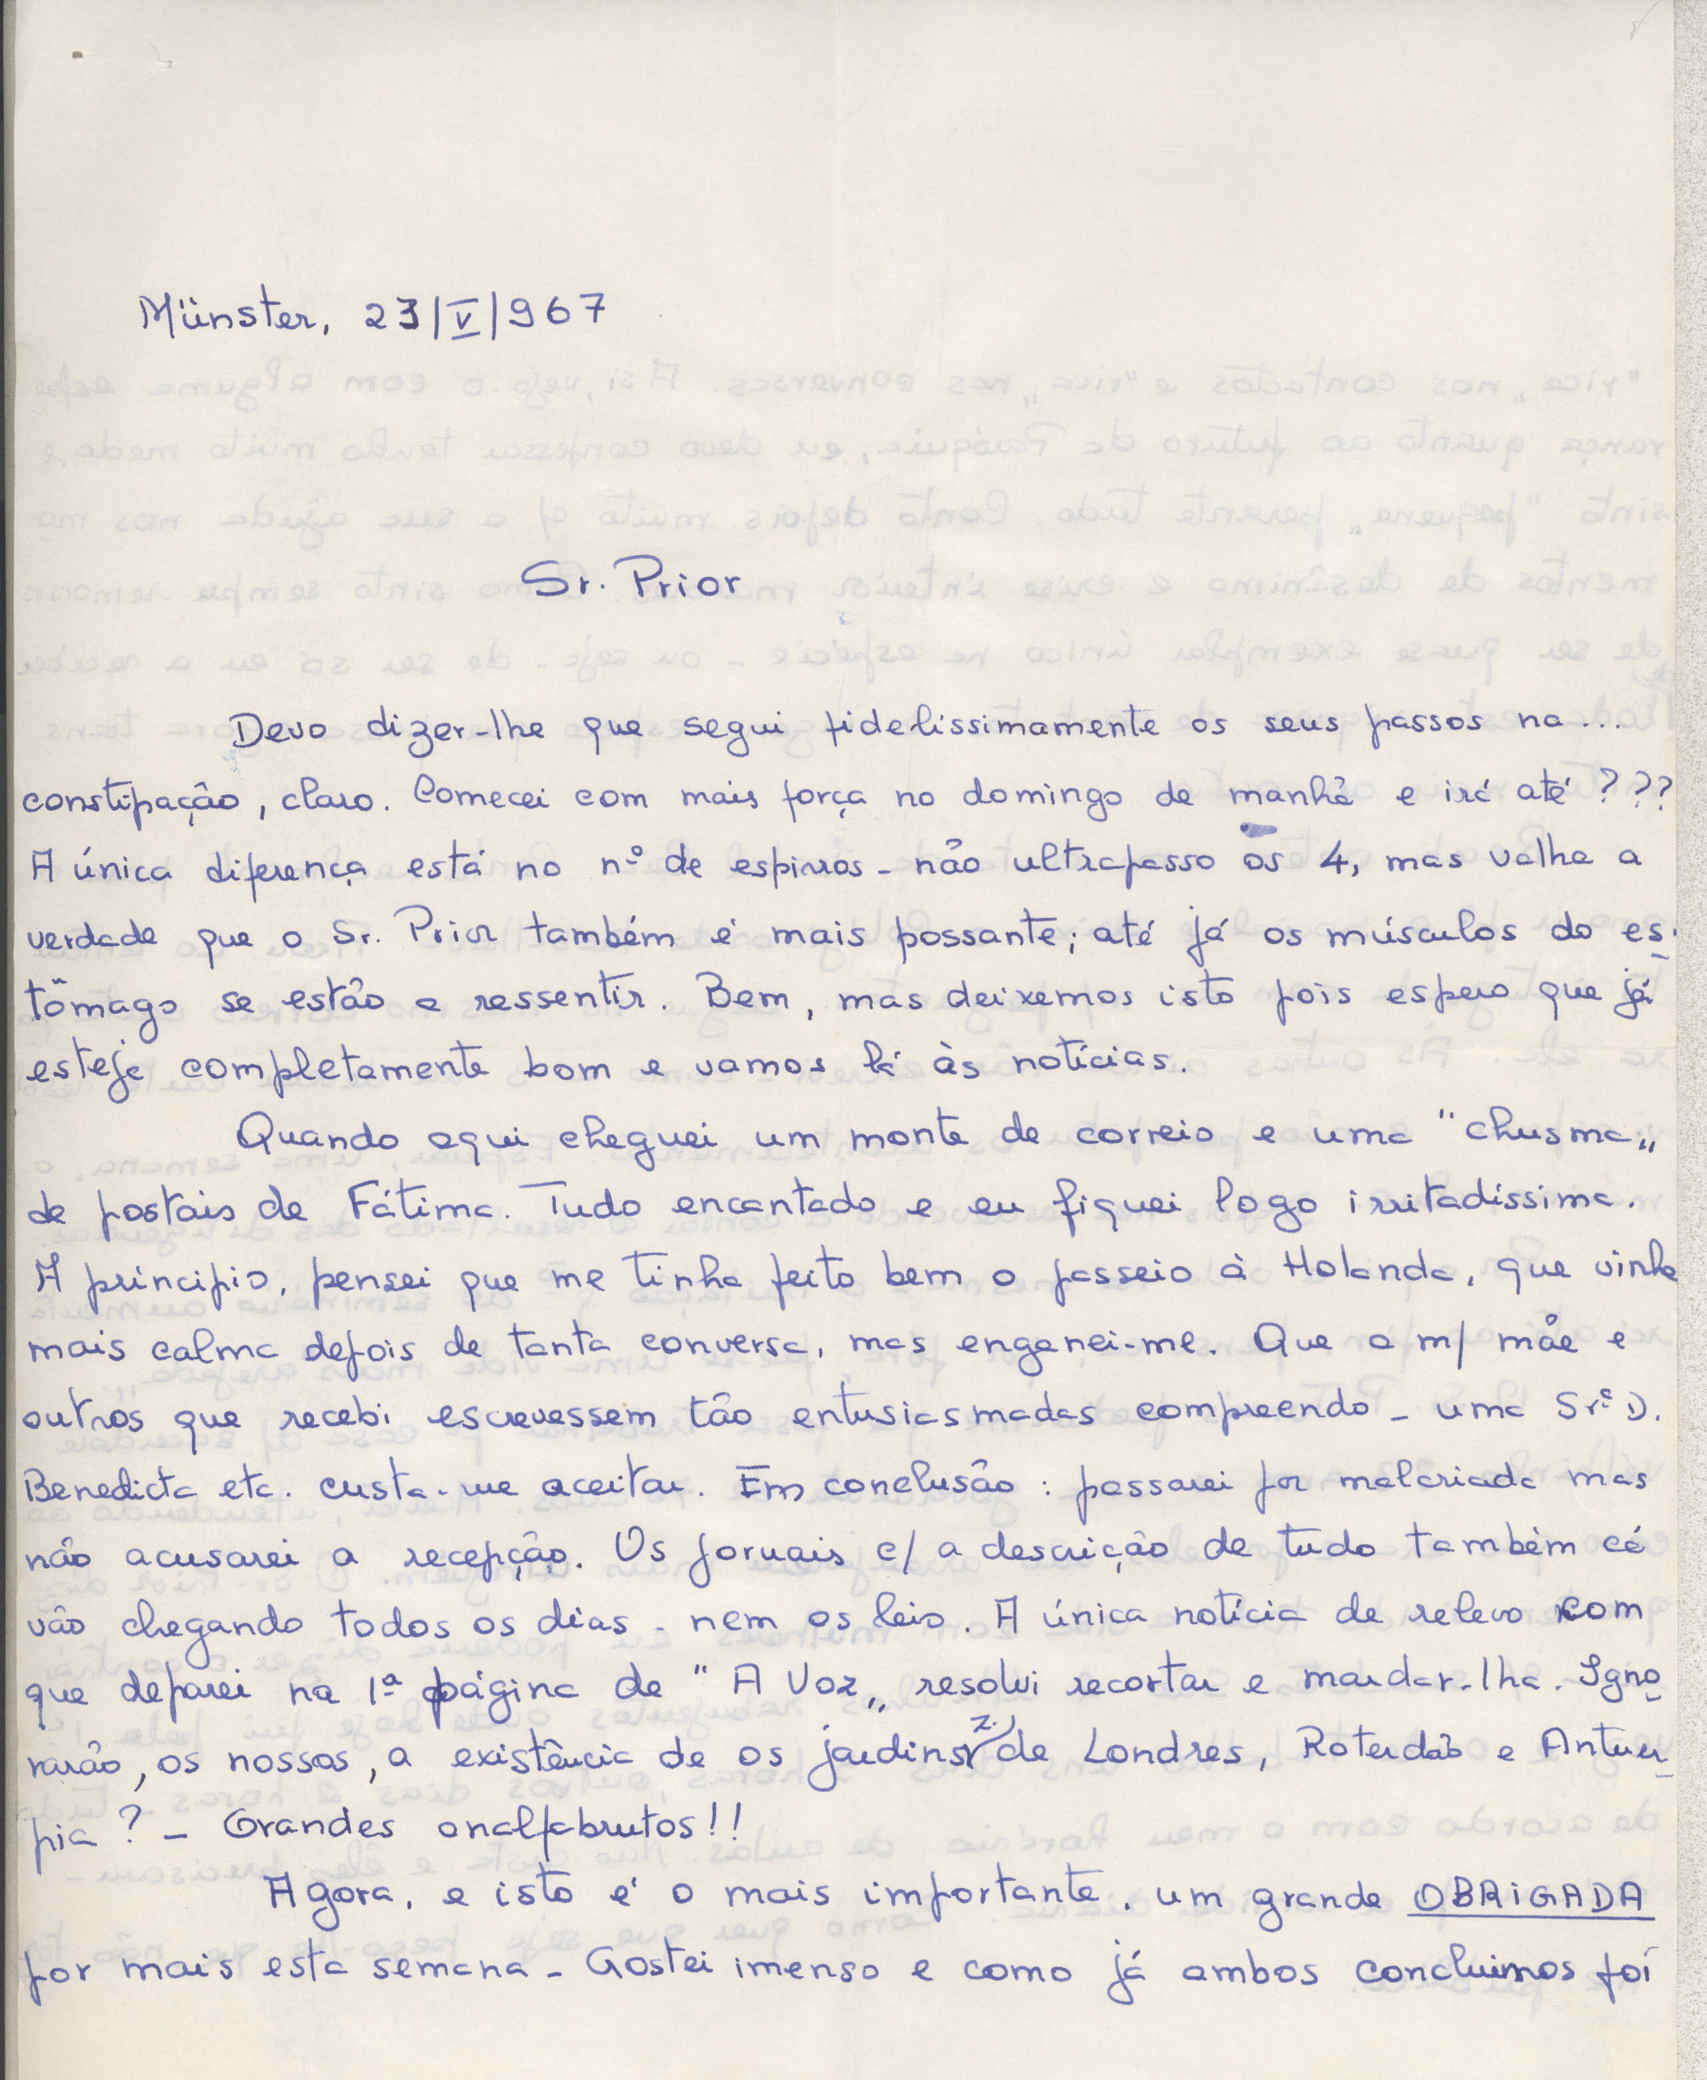 Münster, 23/V/967
Sr. Prior
Devo dizer-lhe que segui fidelissimamente os seus passos na...
constipação, claro. Comecei com mais força no domingo de manhã e irá até ???
A única diferença está no nº de espirros - não ultrapasso os 4, mas valha a
verdade que o Sr. Prior também é mais possante; até já os músculos do es-
tômago se estão a ressentir. Bem, mas deixemos isto pois espero que já
esteja completamente bom e vamos lá às notícias.
Quando aqui cheguei um monte de correio e uma "chusma„
de postais de Fátima. Tudo encantado e eu fiquei logo irritadíssima.
A princípio, pensei que me tinha feito bem o passeio à Holanda, que vinha
mais calma depois de tanta conversa, mas enganei-me. Que a m/ mãe e
outros que recebi escrevessem tão entusiasmadas compreendo - uma Srª D.
Benedicta etc. custa-me aceitar. Em conclusão: passarei por malcriada mas
não acusarei a recepção. Os jornais c/ a descrição de tudo também cá
vão chegando todos os dias - nem os leio. A única notícia de relevo com
que deparei na 1ª página de "A Voz„ resolvi recortar e mandar-lha. Igno-
rarão, os nossos, a existência de os jardins z. de Londres, Roterdão e Antuér-
pia? - Grandes analfabrutos!!
Agora, e isto é o mais importante, um grande OBRIGADA
por mais esta semana - Gostei imenso e como já ambos concluimos foi